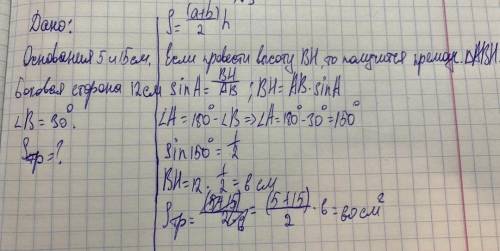 Дано:
Основания 5 и 15 см.
Боковая сторона 12 см
∠B = 30°.
Sтр = ?
S = (a+b)/2 h
Если провести высоту BH то получится прямоуг. △ABH.
sin A = BH/AB ; BH = AB · sin A
∠A = 180° - ∠B => ∠A = 180° - 30° = 150°
sin 150° = 1/2
BH = 12 · 1/2 = 6 см
Sтр = (5+15)/2·6 = (5+15)/2 · 6 = 60 см²